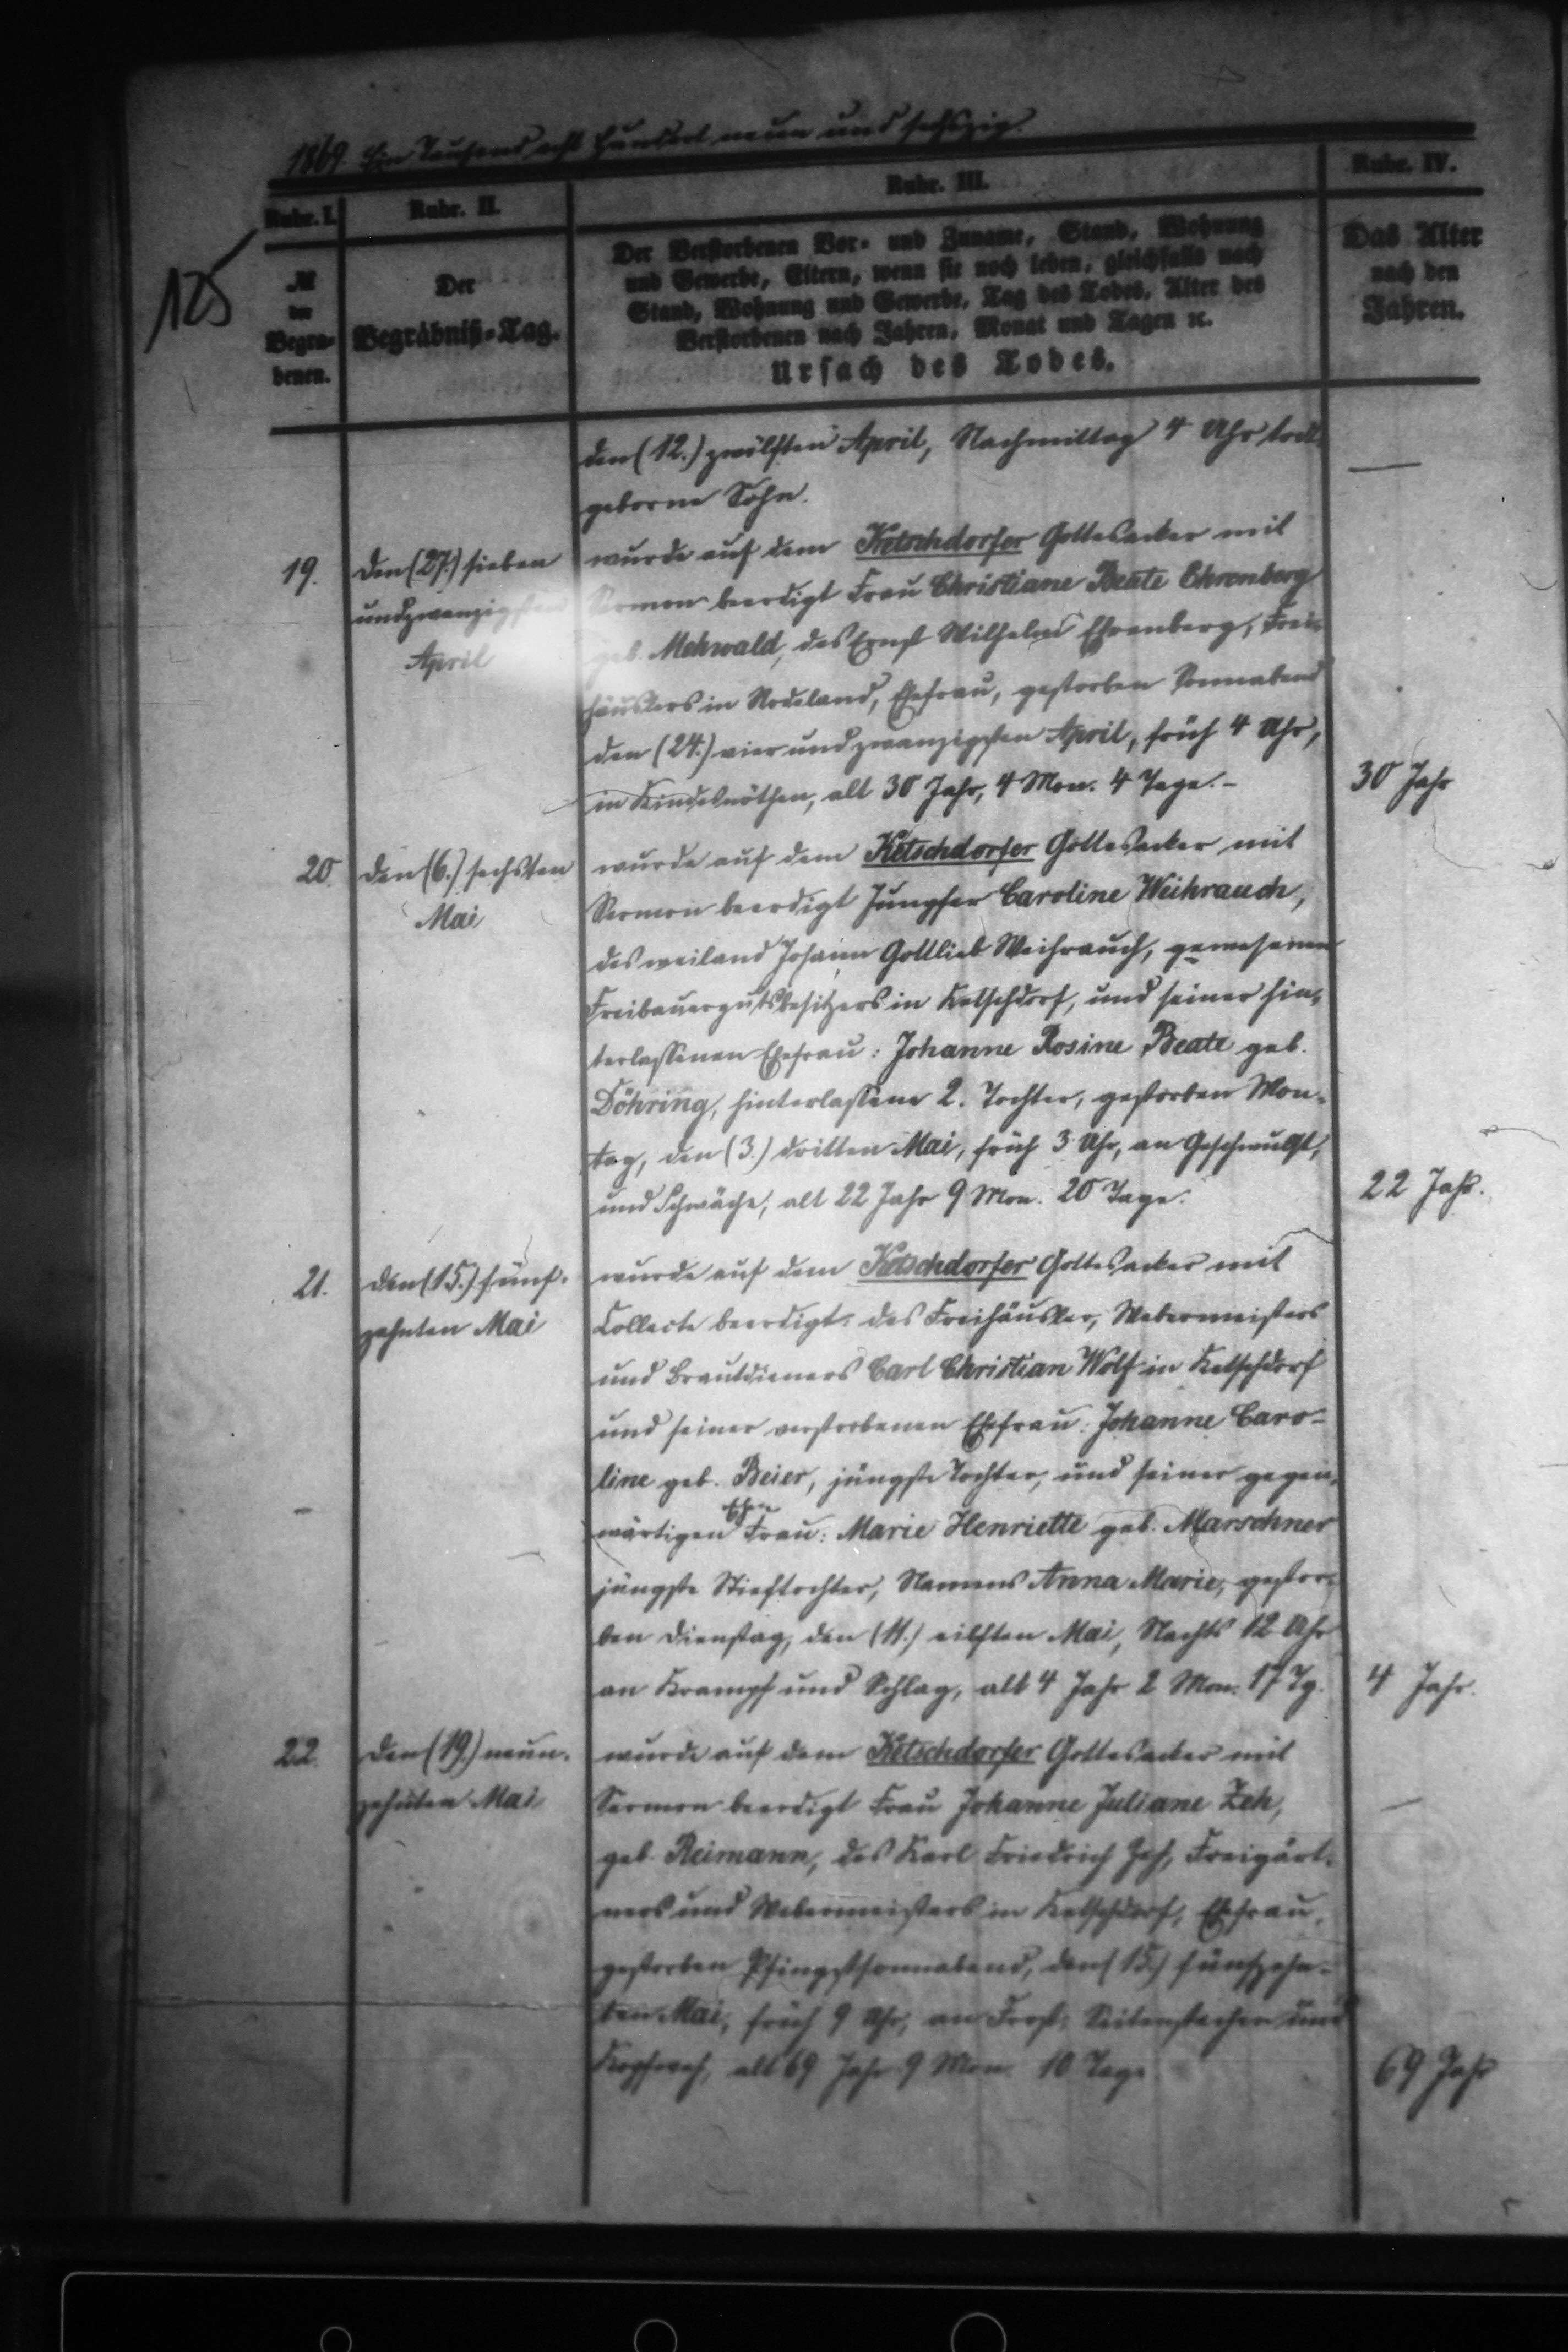 1869 Ein Tausend acht hundert neun und sechszig.
125
Rubr. I.
Rubr. II.
Rubr. III.
Rubr. IV.
№
der
Begra-
benen.
Der
Begräbniß-Tag.
Der Verstorbenen Vor- und Zuname, Stand, Wohnung
und Gewerbe, Eltern, wenn sie noch leben, gleichfalls nach
Stand, Wohnung und Gewerbe, Tag des Todes, Alter des
Verstorbenen nach Jahren, Monat und Tagen ꝛc.
Ursach des Todes.
Das Alter
nach den
Jahren.
den (12.) zwölften April, Nachmittag 4 Uhr todt
geborne Sohn. —
19. den (27.) sieben
undzwanzigsten
April
wurde auf dem Ketschdorfer Gottesacker mit
Sermon beerdigt Frau Christiane Beate Ehrenberg
geb. Mehwald, des Ernst Wilhelm Ehrenberg, Frei-
häuslers in Rodeland, Ehefrau, gestorben Sonnabend
den (24.) vier und zwanzigsten April, früh 4 Uhr,
in Kindesnöthen, alt 30 Jahr, 4 Mon. 4 Tage. - 30 Jahr
20. den (6.) sechsten
Mai
wurde auf dem Ketschdorfer Gottesacker mit
Sermon beerdigt Jungfer Caroline Weihrauch,
des weiland Johann Gottlieb Weihrauch, gewesenen
Freibauergutsbesitzers in Ketschdorf, und seiner hin-
terlassenen Ehefrau: Johanne Rosine Beate geb.
Döhring, hinterlassene 2. Tochter, gestorben Mon-
tag, den (3.) dritten Mai, früh 3 Uhr, an Geschwulst,
und Schwäche, alt 22 Jahr 9 Mon. 20 Tage. 22 Jahr.
21. den (15.) fünf-
zehnten Mai
wurde auf dem Ketschdorfer Gottesacker mit
Collecte beerdigt: des Freihäusler, Webermeisters
und Brautdieners Carl Christian Wolf in Ketschdorf
und seiner verstorbenen Ehefrau: Johanne Caro-
line geb. Beier, jüngste Tochter, und seiner gegen-
wärtigen Ehe Frau: Marie Henriette geb. Marschner
jüngste Stieftochter, Namens Anna Marie, gestor-
ben Dienstag, den (11.) eilften Mai, Nachts 12 Uhr
an Krampf und Schlag, alt 4 Jahr 2 Mon. 17 Tg. 4 Jahr.
22. den (19.) neun-
zehnten Mai
wurde auf dem Ketschdorfer Gottesacker mit
Sermon beerdigt Frau Johanne Juliane Zeh,
geb. Reimann, des Karl Friedrich Zeh, Freigärt-
ners und Webermeisters in Ketschdorf, Ehefrau,
gestorben Pfingstsonnabend, den (15.) fünfzehn-
ten Mai, früh 9 Uhr, an Frost, Seitenstechen und
Kopfweh, alt 69 Jahr 9 Mon. 10 Tage 69 Jahr